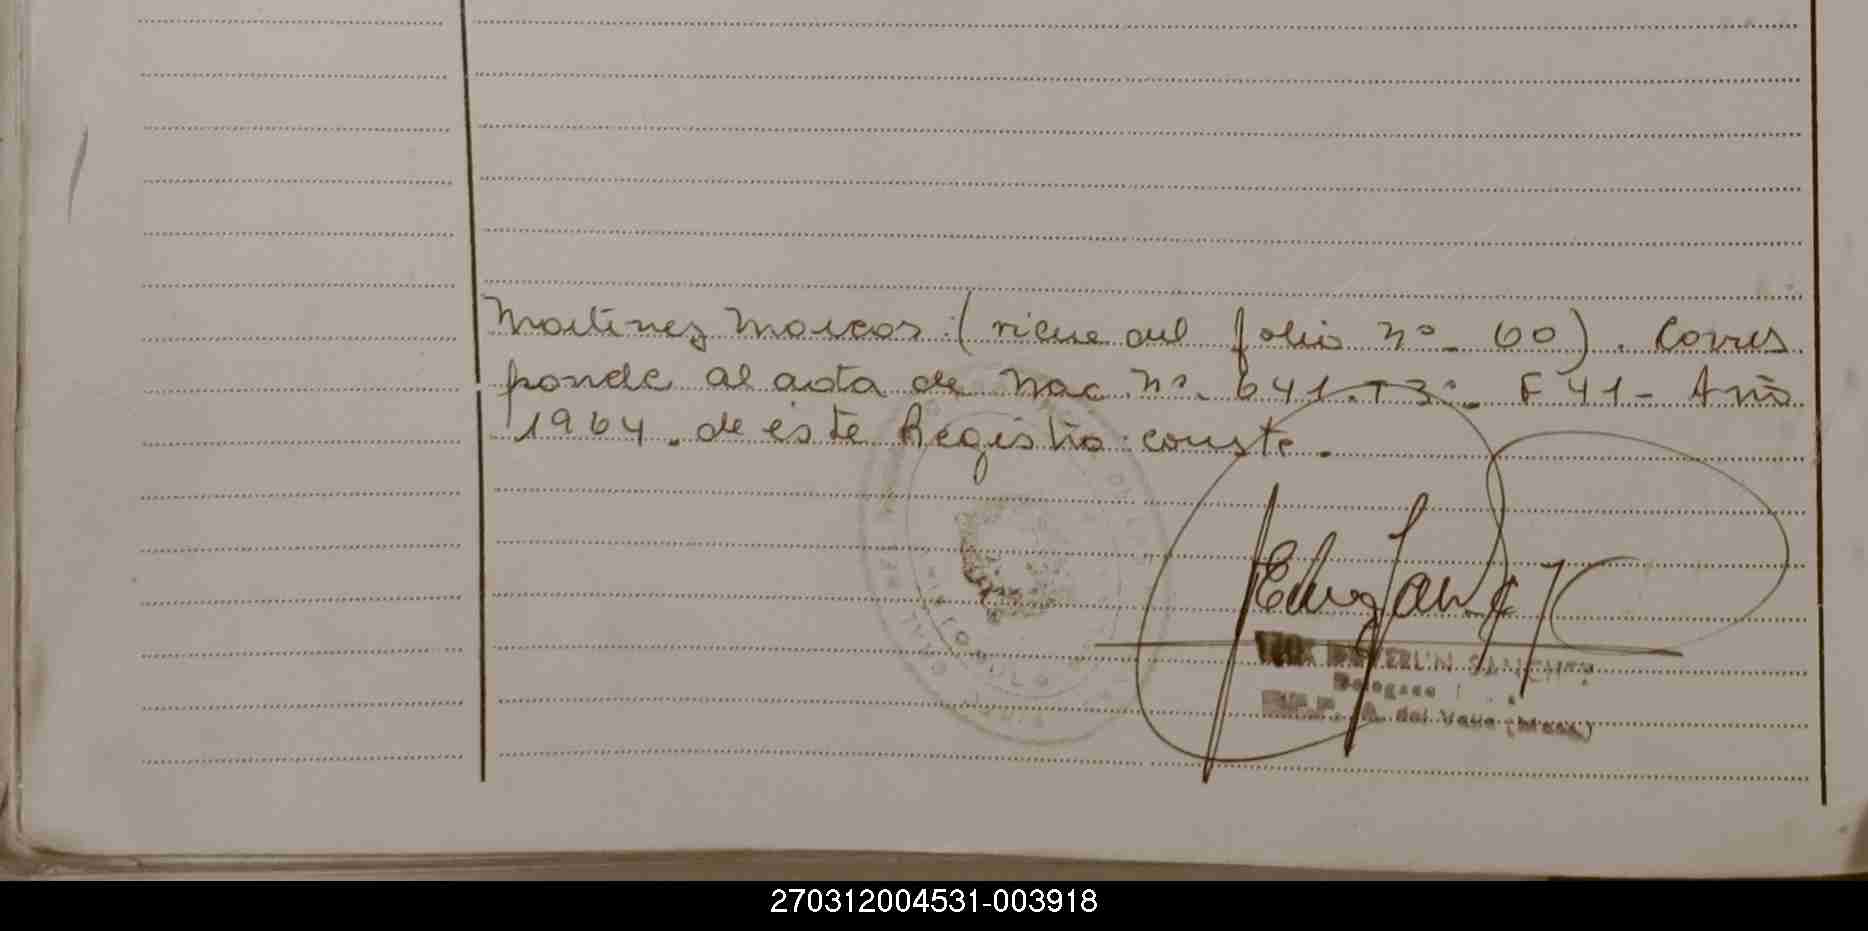 Martinez Marcos (viene del folio nº 60). Corres
ponde al acta de Nac. nº. 641. T 3º. F 41 - Año
1964. de este Registro conste.
SANCHEZ
Delegado
A. del Valle (Mza.)
270312004531-003918